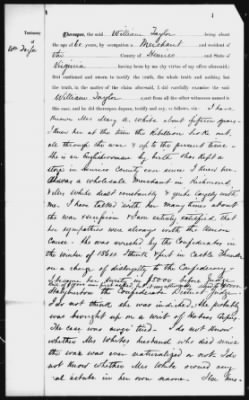 Testimony
of
Wm Taylor
Whereupon, the said William Taylor being about
the age of 60 years, by occupation a Merchant and resident of
the County of Henrico and State of
Virginia having been by me (by virtue of my office aforesaid)
first cautioned and sworn to testify the whole truth, and nothing but
the truth, in the matter of the claim aforesaid, I did carefully examine the said
William Taylor apart from all the other witnesses named in
the case, and he did thereupon depose, testify and say, as follows, viz: I have
known Mrs Mary A. White about fifteen years.
I knew her at the time the Rebellion broke out,
all through the war & up to the present time.
She is an Englishwoman by birth & has kept a
store in Henrico County ever since I knew her.
I was a wholesale Merchant in Richmond
& Mrs White dealt constantly & largely with
me. I have talked with her many times about
the war & am entirely satisfied that
her sympathies were always with the Union
Cause. She was arrested by the Confederates in
the winter of & put in Castle Thunder
on a charge of disloyalty to the Confederacy
the Confederate District Judge
I do not think she was indicted. She probably
was brought up on a writ of Habeas Corpus.
The case was never tried. I do not know
whether Mrs White's husband who died since
the war was ever naturalized or not. I do
not know whether Mrs White owned any
real estate in her own name. She